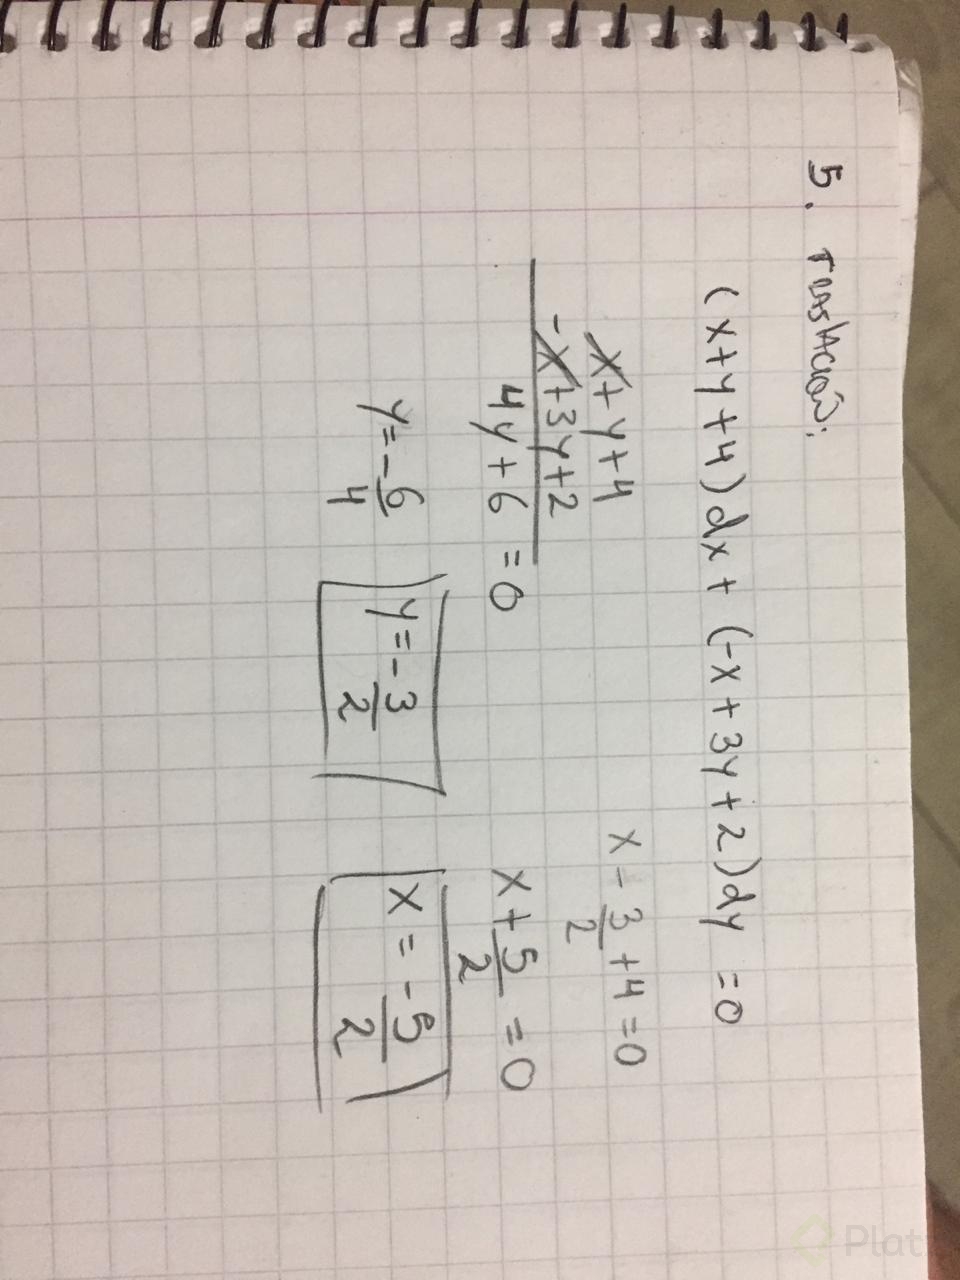 5. TRASLACIÓN:
(x+y+4)dx + (-x+3y+2)dy = 0
x+y+4
-x+3y+2
4y+6 = 0
y = -6/4
y = -3/2
x - 3/2 + 4 = 0
x + 5/2 = 0
x = -5/2